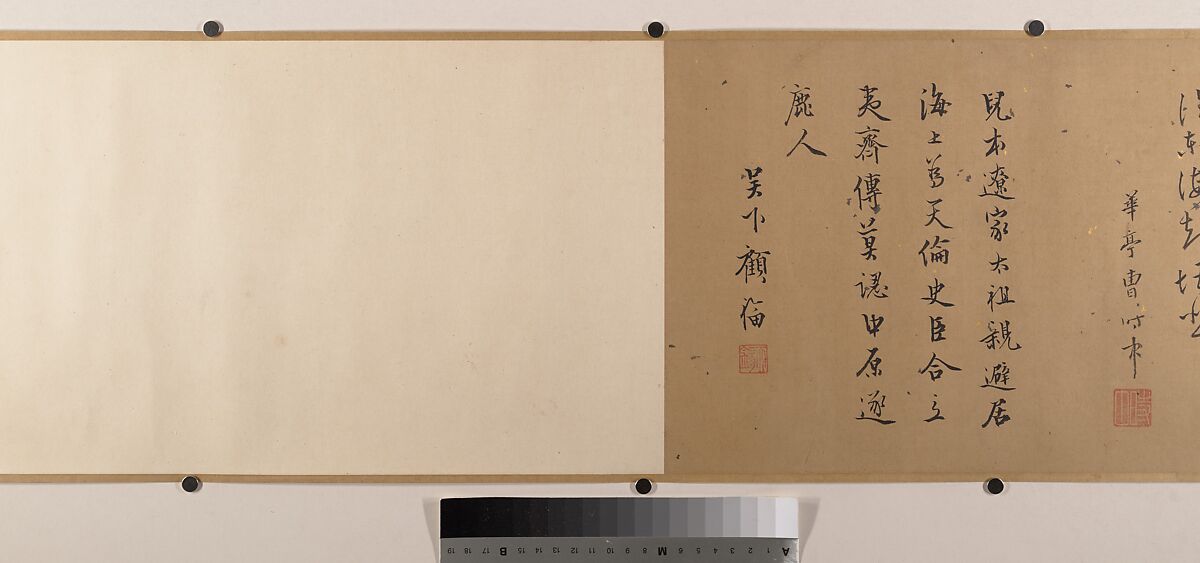 華亭曹時中
兒本遼家太祖親避居
海上為天倫史臣合立
夷齊傳莫認中原逐
鹿人
吴下顧
A 1 2 3 4 5 6 M 8 9 10 11 12 13 14 15 B 17 18 19